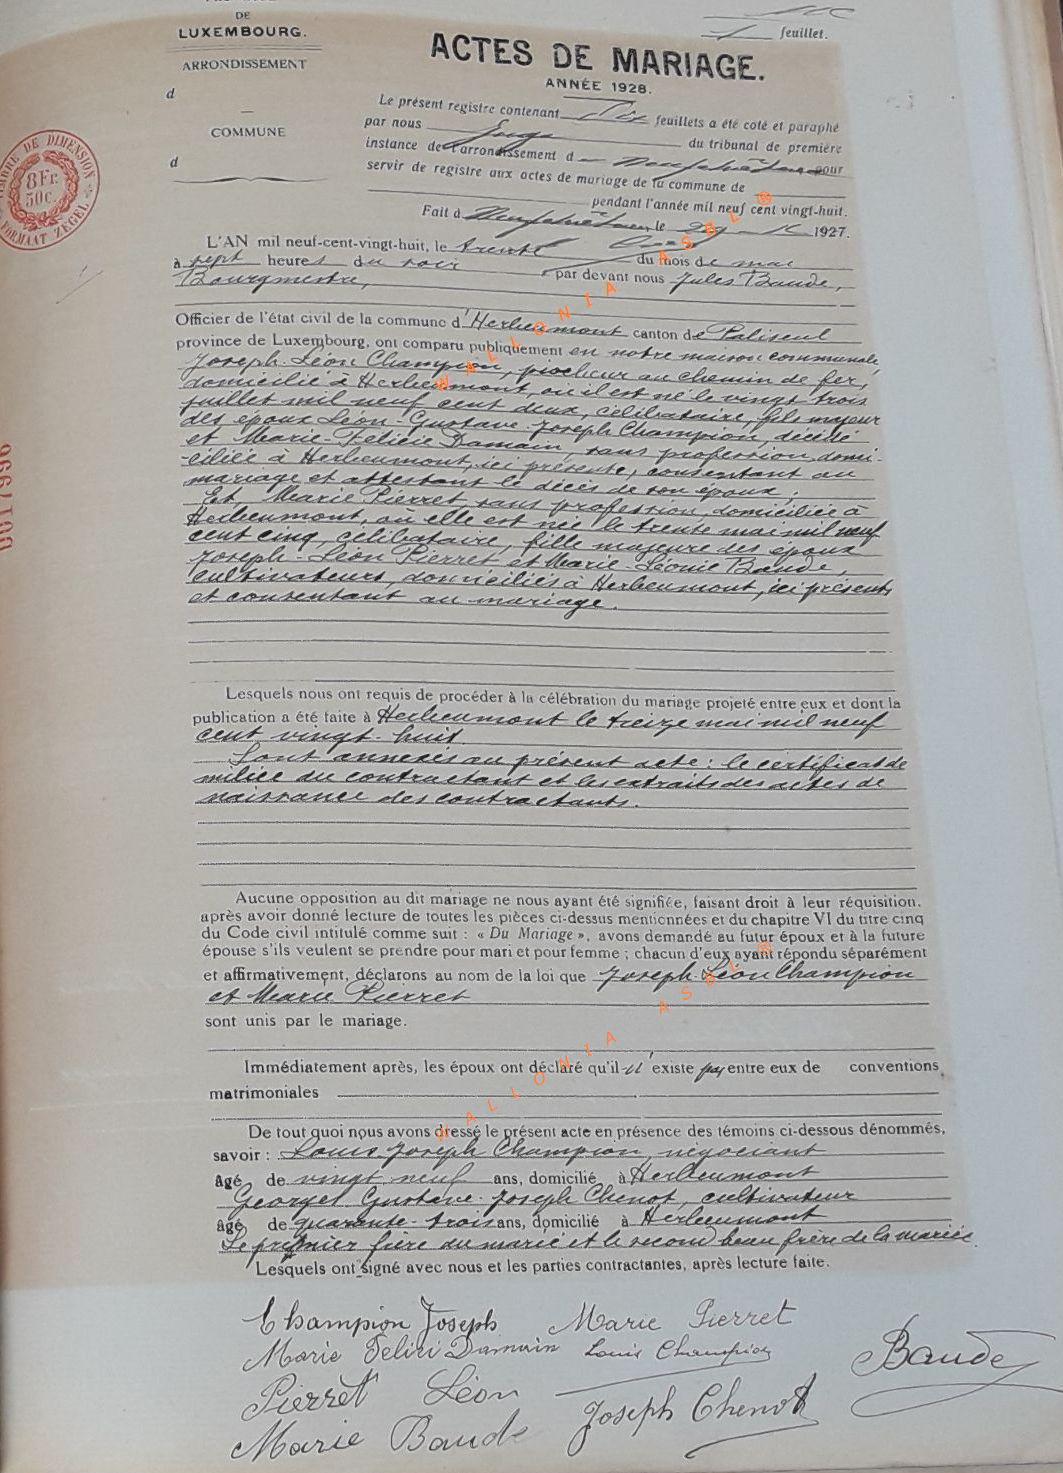 DE
LUXEMBOURG.
ARRONDISSEMENT
d
COMMUNE
d
feuillet.
ACTES DE MARIAGE.
ANNÉE 1928.
Le présent registre contenant Dix feuillets a été coté et paraphé
par nous Juge du tribunal de première
instance de l'arrondissement d Neufchâteau pour
servir de registre aux actes de mariage de la commune de
pendant l'année mil neuf cent vingt-huit.
Fait à Neufchâteau, le 1927.
TIMBRE DE DIMENSION
8 Fr.
50c.
FORMAAT ZEGEL
D017996
L'AN mil neuf-cent-vingt-huit, le trente du mois de mai
à sept heures du soir par devant nous Jules Baude,
Bourgmestre,
Officier de l'état civil de la commune d'Herbeumont canton de Paliseul
province de Luxembourg, ont comparu publiquement en notre maison communale,
Joseph-Léon Champion, piocheur au chemin de fer,
domicilié à Herbeumont, où il est né le vingt trois
juillet mil neuf cent deux, célibataire, fils majeur
des époux Léon-Gustave-Joseph Champion, décédé
et Marie-Félicie Damain, sans profession, domi-
ciliée à Herbeumont, ici présente, consentant au
mariage et attestant le décès de son époux;
Et, Marie Pierret sans profession, domiciliée à
Herbeumont, où elle est née le trente mai mil neuf
cent cinq, célibataire, fille majeure des époux
Joseph-Léon Pierret et Marie-Léonie Baude,
cultivateurs, domiciliés à Herbeumont, ici présents
et consentant au mariage.
Lesquels nous ont requis de procéder à la célébration du mariage projeté entre eux et dont la
publication a été faite à Herbeumont le treize mai mil neuf
cent vingt-huit.
Sont annexés au présent acte : le certificat de
milice du contractant et les extraits des actes de
naissance des contractants.
Aucune opposition au dit mariage ne nous ayant été signifiée, faisant droit à leur réquisition,
après avoir donné lecture de toutes les pièces ci-dessus mentionnées et du chapitre VI du titre cinq
du Code civil intitulé comme suit : « Du Mariage », avons demandé au futur époux et à la future
épouse s'ils veulent se prendre pour mari et pour femme ; chacun d'eux ayant répondu séparément
et affirmativement, déclarons au nom de la loi que Joseph-Léon Champion
et Marie Pierret
sont unis par le mariage.
Immédiatement après, les époux ont déclaré qu'il n'existe pas entre eux de conventions
matrimoniales
De tout quoi nous avons dressé le présent acte en présence des témoins ci-dessous dénommés,
savoir : Louis Joseph Champion, négociant
âgé de vingt neuf ans, domicilié à Herbeumont
Georges Gustave-Joseph Chenot, cultivateur
âgé de quarante-trois ans, domicilié à Herbeumont
Le premier frère du marié et le second beau frère de la mariée
Lesquels ont signé avec nous et les parties contractantes, après lecture faite.
Champion Joseph Marie Pierret
Marie Felici Damain Louis Champion
Baude
Pierret Léon Joseph Chenot
Marie Baude
WALLONIA ASBL ®
WALLONIA ASBL ®